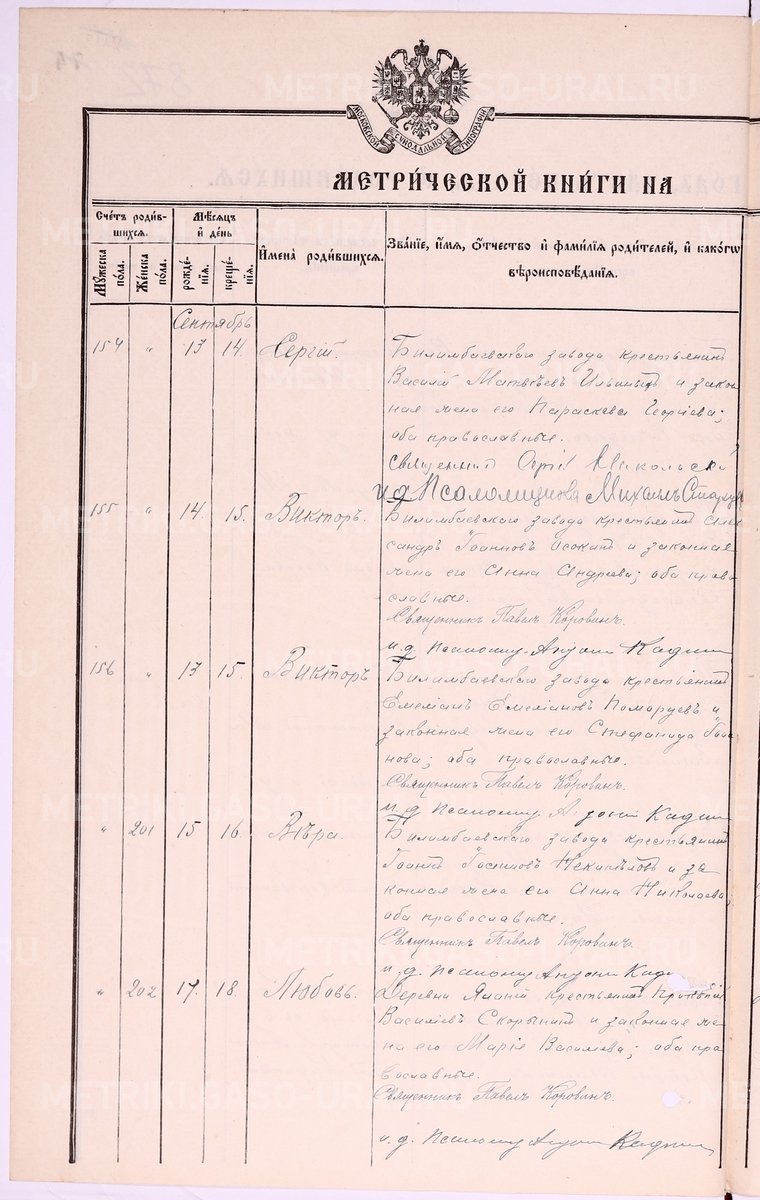 МОСКОВСКОЙ СѴНОДАЛЬНОЙ ТИПОГРАФІИ
МЕТРИ́ЧЕСКОЙ КНИ́ГИ НА
Сче́тъ роди́в-
шихся.
Мѣ́сяцъ
и҆ де́нь
Мꙋ́жеска
по́ла.
Же́нска
по́ла.
рожде́-
нїя.
креще́-
нїя.
И҆мена̀ роди́вшихся.
Зва́нїе, и҆́мя, ѻ҆́тчество и҆ фами́лїя роди́телей, и҆ како́гѡ
вѣроисповѣ́данїя.
Сентябрь
154 " 13 14. Сергій. Билимбаевскаго завода крестьянинъ
Василій Матвѣевъ Ильиныхъ и закон
ная жена его Параскева Георгіева;
оба православные.
Священникъ Сергій Никольскій
и.д. Псаломщика Михаилъ
155 " 14. 15. Викторъ. Билимбаевскаго завода крестьянинъ Алек
сандръ Іоанновъ Осокинъ и законная
жена его Анна Андреева; оба право
славные.
Священникъ Павелъ Коровинъ.
и.д. Псаломщ.
156 " 13 15. Викторъ Билимбаевскаго завода крестьянинъ
Емеліанъ Емеліановъ и
законная жена его Стефанида Іоан
нова; оба православные.
Священникъ Павелъ Коровинъ.
и.д. Псаломщ.
" 201 15 16. Вѣра. Билимбаевскаго завода крестьянинъ
Іоаннъ Некипѣловъ и за
конная жена его Анна Николаева;
оба православные.
Священникъ Павелъ Коровинъ.
и.д. Псаломщ.
" 202 17. 18. Любовь. Деревни крестьянинъ Прокопій
Василіевъ Скорынинъ и законная же
на его Марія Василіева; оба пра
вославные.
Священникъ Павелъ Коровинъ.
и.д. Псаломщ.
METRIKI.GASO-URAL.RU